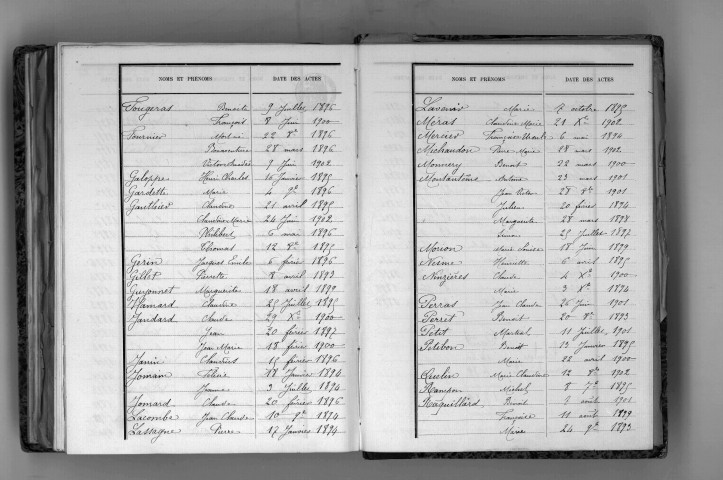 NOMS ET PRÉNOMS DATE DES ACTES
Fougeras Benoite 9 Juillet 1896
François 8 Juin 1900
Fournier 22 8bre 1896
Bonaventure 28 mars 1896
Victor 9 Juin 1902
Galoppe Henri Charles 16 Janvier 1895
Gardette Marie 4 9bre 1896
Gauthier Claudine 21 avril 1895
Claudine Marie 24 Juin 1902
Philibert 6 mai 1896
Thomas 12 8bre 1895
Gerin Jacques 6 février 1896
Gillet Pierrette 8 avril 1893
Guyonnet Marguerite 18 avril 1899
Hamard Claudine 25 Juillet 1895
Jandard Claude 29 Xbre 1900
Jean 20 février 1897
Jean Marie 18 février 1900
Janin Claudius 15 février 1896
Jomain 18 Janvier 1894
Jeanne 3 Juillet 1894
Jomard Claude 20 février 1896
Lacombe Jean Claude 10 9bre 1894
Lassagne Pierre 17 Janvier 1894
NOMS ET PRÉNOMS DATE DES ACTES
Lavenir Marie octobre 1895
Méras Claudine Marie 21 Xbre 1902
Mercier Françoise 6 mai 1894
Michaudon Pierre Marie 18 mars 1902
Monnery Benoit 22 mars 1900
Montantème Antoine 23 mars 1901
Jean 28 8bre 1901
Julien 20 février 1894
Marguerite 28 mars 1898
25 Juillet 1897
Morion Marie Louise 18 Juin 1899
Nesme Henriette 6 avril 1895
Nouzières Claude 4 Xbre 1900
Marie 3 8bre 1894
Perras Jean Claude 26 Juin 1901
Perret Benoit 20 8bre 1893
Petit Martial 11 Juillet 1901
Petebon Benoit 13 Janvier 1895
Marie 22 avril 1900
Marie Claudine 12 8bre 1902
Rampon Michel 8 7bre 1895
Raquillard Benoit août 1901
Françoise 11 août 1899
Marie 24 9bre 1893